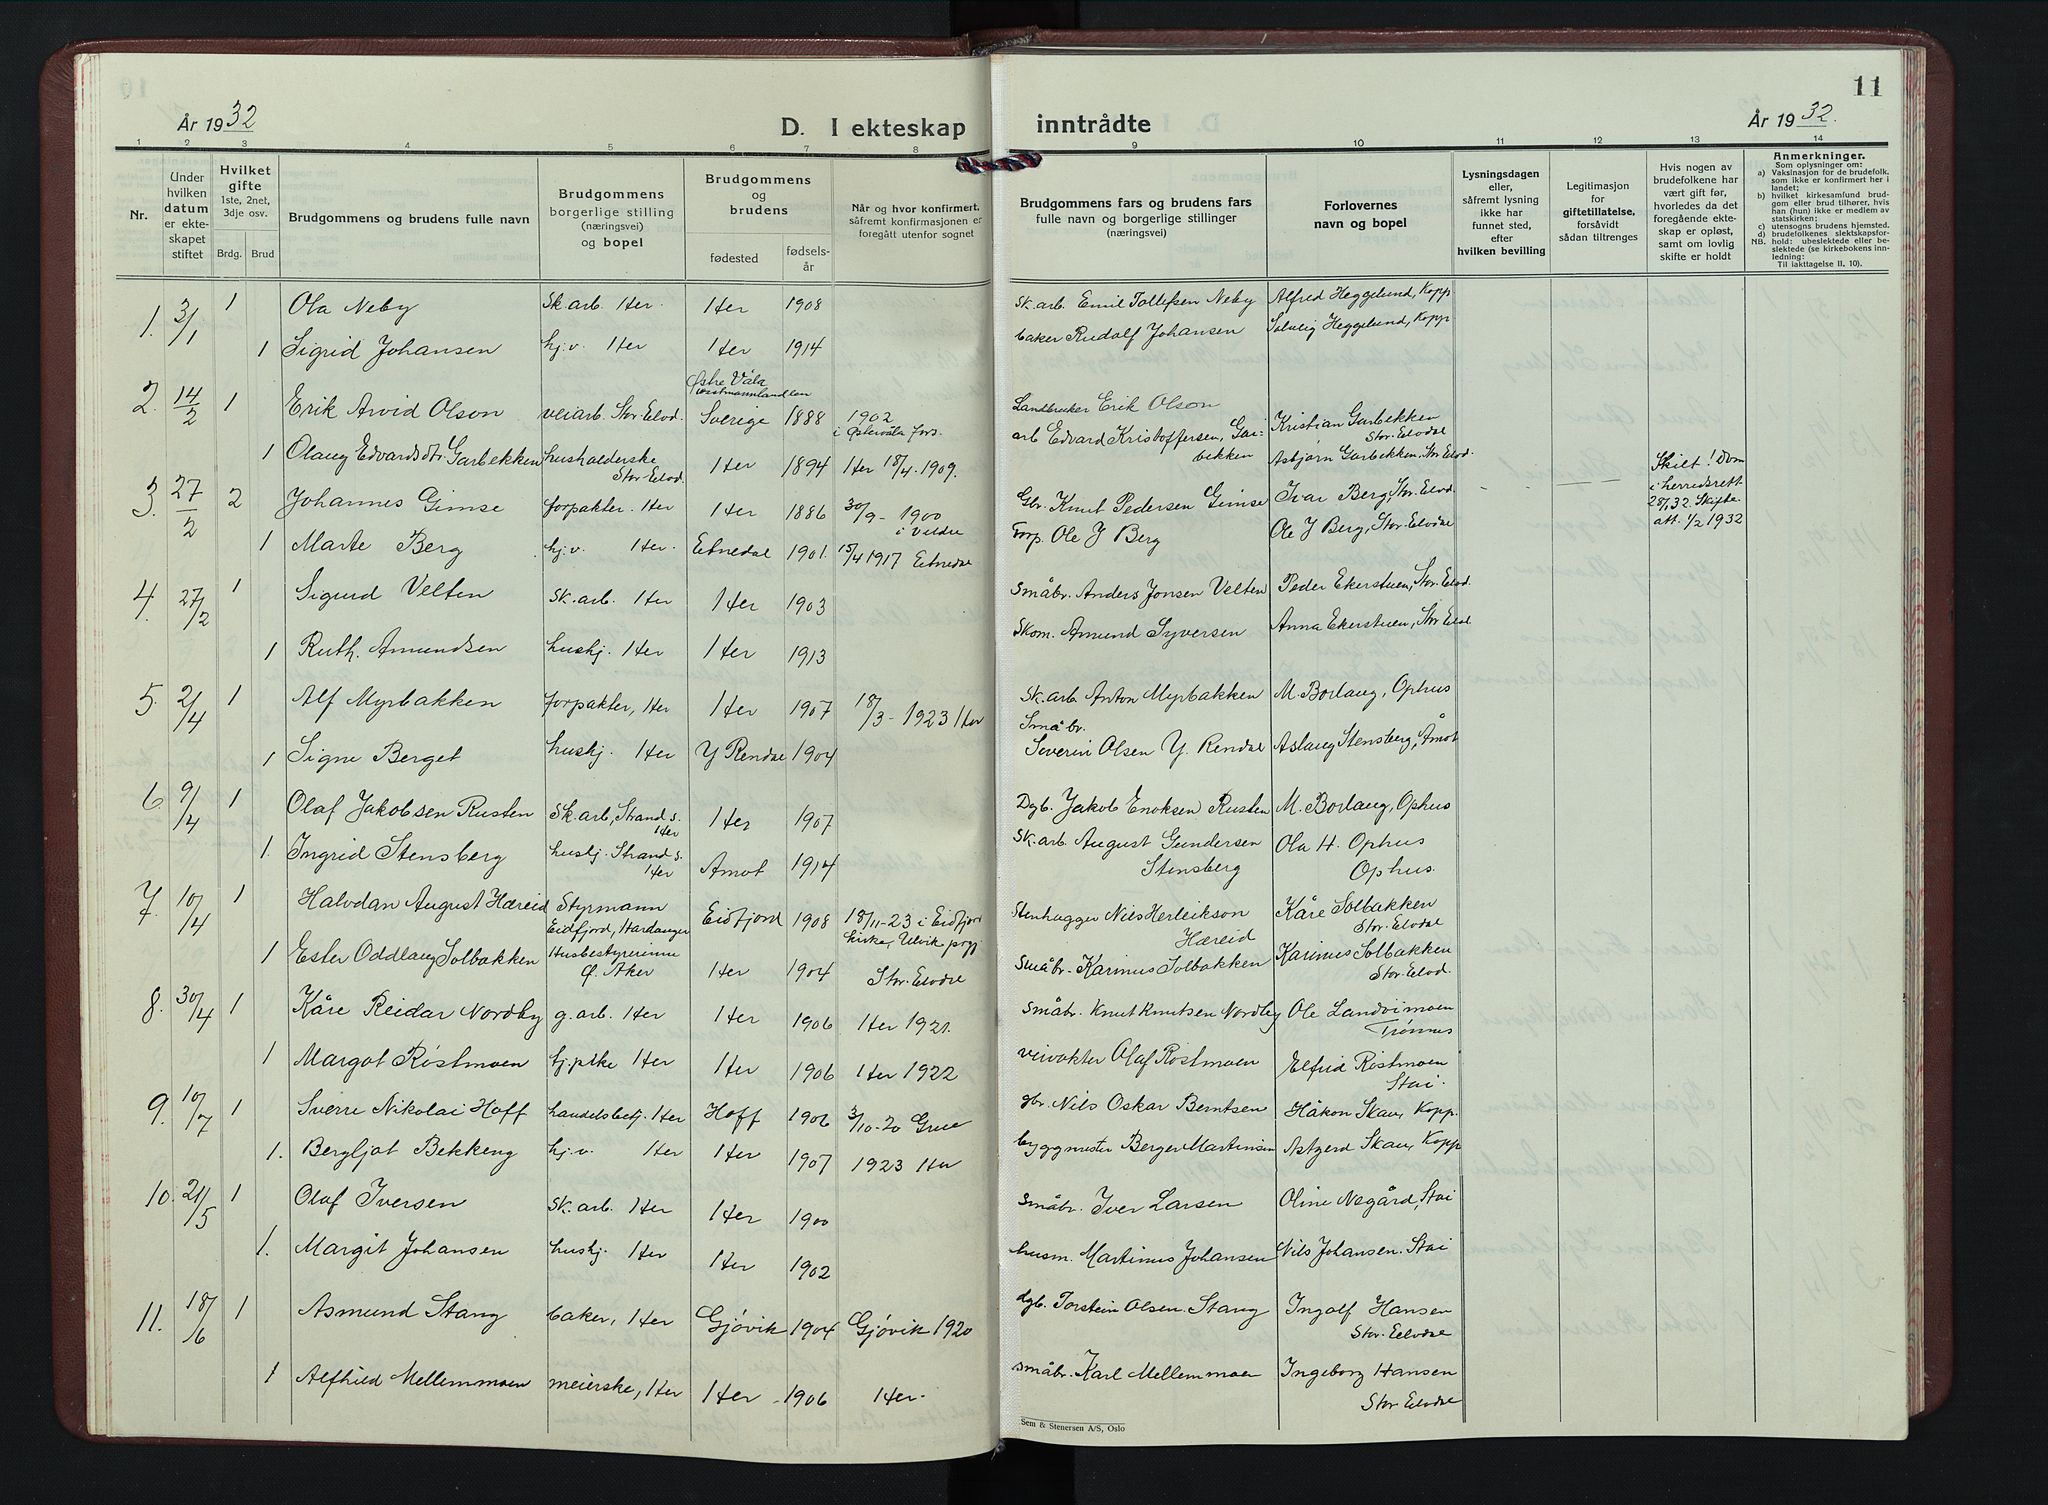 11
År 1932
D. I ekteskap inntrådte
År 1932.
1 2 3 4 5 6 7 8 9 10 11 12 13 14
Nr.
Under hvilken datum er ekteskapet stiftet
Hvilket gifte 1ste, 2net, 3dje osv.
Brdg. Brud
Brudgommens og brudens fulle navn
Brudgommens borgerlige stilling (næringsvei) og bopel
Brudgommens og brudens
fødested
fødselsår
Når og hvor konfirmert, såfremt konfirmasjonen er foregått utenfor sognet
Brudgommens fars og brudens fars fulle navn og borgerlige stillinger (næringsvei)
Forlovernes navn og bopel
Lysningsdagen eller, såfremt lysning ikke har funnet sted, efter hvilken bevilling
Legitimasjon for giftetillatelse, forsåvidt sådan tiltrenges
Hvis nogen av brudefolkene har vært gift før, hvorledes da det foregående ekteskap er opløst, samt om lovlig skifte er holdt
Anmerkninger.
Som oplysninger om:
a) Vaksinasjon for de brudefolk, som ikke er konfirmert her i landet;
b) hvilket kirkesamfund brudgom eller brud tilhører, hvis han (hun) ikke er medlem av statskirken;
c) utensogns brudens hjemsted.
d) brudefolkenes slektskapsforhold: ubeslektede eller beslektede (se kirkebokens innledning:
NB. Til iakttagelse II, 10).
1. 3/1 1 Ola Neby Sk.arb. Her. Her 1908 Sk.arb. Emil Tollefsen Neby Alfred Heggelund, Kopp
1 Sigrid Johansen hj.v. Her Her 1914 baker Rudolf Johansen Solveig Heggelund, Kopp
2. 14/2 1 Erik Arvid Olson veiarb. Stor-Elvd. Østre Våla Vestmannlandlen Sverige 1888 1902 i Østervåla fors. Landbruker Erik Olson Kristian Garbekken Stor-Elvdal
1 Olaug Edvardsdtr. Garbekken husholderske Stor-Elvd. Her 1894 Her 18/4-1909. arb Edvard Kristoffersen, Garbekken Asbjørn Garbekken, Stor-Elvd.
3. 27/2 2 Johannes Gimse forpakter. Her Her 1886 30/9-1900 i Veldre Gbr. Knut Pedersen Gimse Ivar Berg, Stor-Elvd. Skilt! Dom i herredsrett 28/1 32 Skifte att. 1/2 1932
1 Marte Berg hj.v. Her. Etnedal 1901. 15/4 1917 Etnedal Forp. Ole J Berg Ole J Berg, Stor-Elvdal
4. 27/2 1 Sigurd Velten sk.arb. Her Her 1903 Småbr. Anders Jonsen Velten Peder Ekerstuen, Stor-Elvd.
1 Ruth. Amundsen hushj. Her Her 1913 Skom. Amund Syversen Anna Ekerstuen, Stor Elvdal
5. 2/4 1 Alf Myrbakken forpakter, Her Her 1907 18/3-1923 Her Sk.arb. Anton Myrbakken M. Borlaug, Ophus
1 Signe Berget hushj. Her Y Rendal 1904 Småbr. Severin Olsen Y. Rendal Aslaug Stensberg, Åmot
6 9/4 1 Olaf Jakobsen Rusten Sk.arb, Strand s. Her Her 1907 Dgb. Jakob Enoksen Rusten M. Borlaug, Ophus
1. Ingrid Stensberg hushj. Strand s. Her Åmot 1914 Sk.arb. August Gundersen Stensberg Ola H. Ophus Ophus.
7. 10/4 1 Halvdan August Hæreid Styrmann Eidfjord, Hardanger Eidfjord 1908 18/11-23 i Eidfjord kirke, Ulvik prgj Stenhugger Nils Herleikson Hæreid Kåre Solbakken Stor-Elvdal
1 Ester Oddlaug Solbakken Husbestyrerinne Ø. Aker Her 1904 Stor-Elvdal Småbr. Karinus Solbakken Karinus Solbakken Stor-Elvd.
8. 30/4 1 Kåre Reidar Nordby g.arb. Her Her 1906 Her 1921. Småbr. Knut Knutsen Nordby Ole Landvimoen Trønnes
1 Margot Røstmoen hj.pike Her Her 1906 Her 1922 veivokter Olaf Røstmoen Elfrid Røstmoen Stai.
9. 10/7 1 Sverre Nikolai Hoff handelsbetj. Her Hoff 1906 3/10-20 Grue gbr. Nils Oskar Berntsen Håkon Skau, Kopp.
1. Bergljot Bekkeng hj.v. Her Her 1907 1923 Her byggmester Berger Martinsen Astgerd Skau, Kopp
10. 21/5 1 Olaf Iversen sk.arb. Her Her 1900 Småbr. Iver Larsen Oline Negård, Stai
1. Margit Johansen hushj. Her Her 1902 husm. Martinus Johansen Nils Johansen. Stai
11. 18/6 1 Asmund Stang baker, Her Gjøvik 1904 Gjøvik 1920 dgb. Torstein Olsen. Stang Ingolf Hansen Stor-Elvdal
1 Alfhild Mellemmoen meierske, Her Her 1906 Her. småbr. Karl Mellemmoen Ingeborg Hansen Stor Elvdal
Sem & Stenersen A/S, Oslo